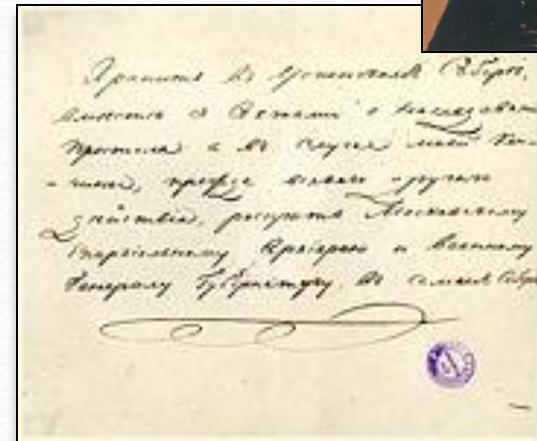 Хранить въ Успенскомъ Соборѣ,
вместе съ Актами о
престола а въ случае моей кон-
- чины, прежде всякаго другаго
действія, раскрыть Московскому
Епархіальному Архіерею и Военному
Генералу Губернатору, въ Соборѣ